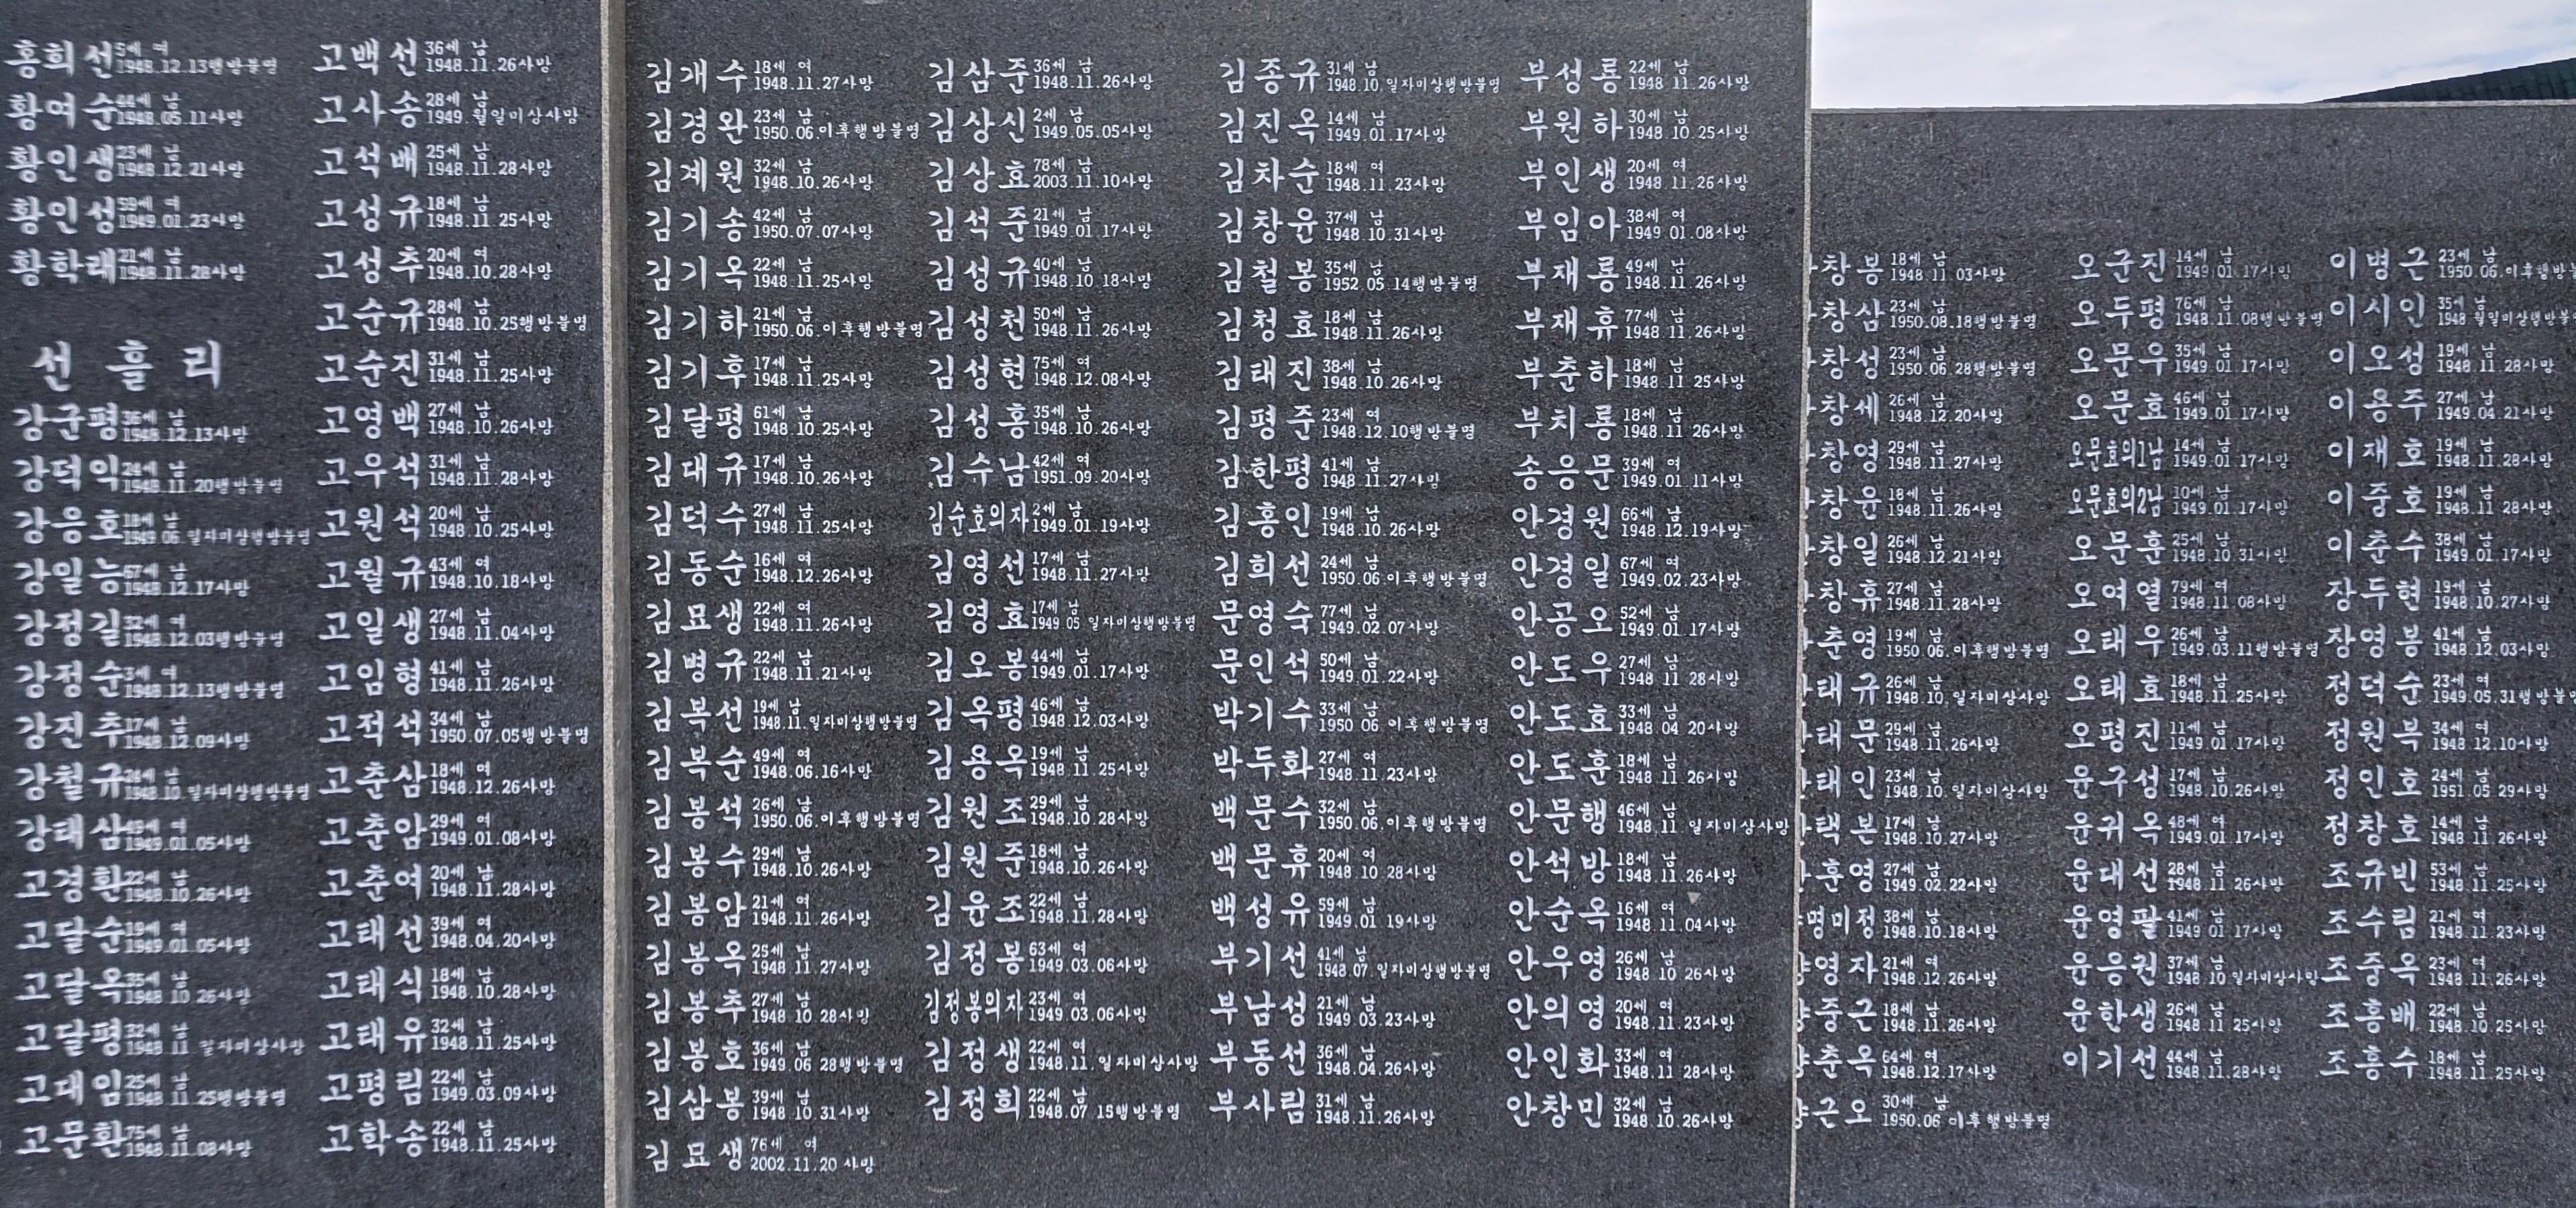 홍희선 5세 여
1948.12.13행방불명
황여순 44세 남
1948.05.11사망
황인생 23세 남
1948.12.21사망
황인성 59세 여
1949.01.23사망
황학래 21세 남
1948.11.28사망
선흘리
강군평 36세 남
1948.12.13사망
강덕익 24세 남
1948.11.20행방불명
강응호 18세 남
1949.06.일자미상행방불명
강일능 67세 남
1948.12.17사망
강정길 32세 여
1948.12.03행방불명
강정순 3세 여
1948.12.13행방불명
강진추 17세 남
1948.12.09사망
강철규 24세 남
1948.10.일자미상행방불명
강태삼 여
1949.01.05사망
고경환 22세 남
1948.10.26사망
고달순 19세 여
1949.01.05사망
고달옥 35세 남
1948 10 26사망
고달평 32세 남
1948 11 일자미상사망
고대임 25세 남
1948 11.25행방불명
고문환 75세 남
1948.11.08사망
고백선 36세 남
1948.11.26사망
고사송 28세 남
1949.월일미상사망
고석배 25세 남
1948.11.28사망
고성규 18세 남
1948.11.25사망
고성추 20세 여
1948.10.28사망
고순규 28세 남
1948.10.25행방불명
고순진 31세 남
1948.11.25사망
고영백 27세 남
1948.10.26사망
고우석 31세 남
1948.11.28사망
고원석 20세 남
1948.10.25사망
고월규 43세 여
1948.10.18사망
고일생 27세 남
1948.11.04사망
고임형 41세 남
1948.11.26사망
고적석 34세 남
1950.07.05행방불명
고춘삼 18세 여
1948.12.26사망
고춘암 29세 여
1949.01.08사망
고춘여 20세 남
1948.11.28사망
고태선 39세 여
1948.04.20사망
고태식 18세 남
1948.10.28사망
고태유 32세 남
1948.11.25사망
고평림 22세 남
1949.03.09사망
고학송 22세 남
1948.11.25사망
김개수 18세 여
1948.11.27사망
김경완 23세 남
1950.06.이후행방불명
김계원 32세 남
1948.10.26사망
김기송 42세 남
1950.07.07사망
김기옥 22세 남
1948.11.25사망
김기하 21세 남
1950.06.이후행방불명
김기후 17세 남
1948.11.25사망
김달평 61세 남
1948.10.25사망
김대규 17세 남
1948.10.26사망
김덕수 27세 남
1948.11.25사망
김동순 16세 여
1948.12.26사망
김묘생 22세 여
1948.11.26사망
김병규 22세 남
1948.11.21사망
김복선 19세 남
1948.11.일자미상행방불명
김복순 49세 여
1948.06.16사망
김봉석 26세 남
1950.06.이후행방불명
김봉수 29세 남
1948.10.26사망
김봉암 21세 여
1948.11.26사망
김봉옥 25세 남
1948 11.27사망
김봉추 27세 남
1948 10 28사망
김봉호 36세 남
1949.06 28행방불명
김삼봉 39세 남
1948 10.31사망
김묘생 76세 여
2002.11.20 사망
김삼준 36세 남
1948.11.26사망
김상신 2세 남
1949.05.05사망
김상효 78세 남
2003.11.10사망
김석준 21세 남
1949.01.17사망
김성규 40세 남
1948.10.18사망
김성천 50세 남
1948.11.26사망
김성현 75세 여
1948.12.08사망
김성홍 35세 남
1948.10.26사망
김수남 42세 여
1951.09.20사망
김순호의자 2세 남
1949.01.19사망
김영선 17세 남
1948.11.27사망
김영효 17세 남
1949 05 일자미상행방불명
김오봉 44세 남
1949.01.17사망
김옥평 46세 남
1948.12.03사망
김용옥 19세 남
1948.11.25사망
김원조 29세 남
1948.10.28사망
김원준 18세 남
1948.10.26사망
김윤조 22세 남
1948.11.28사망
김정봉 63세 여
1949.03.06사망
김정봉의자 23세 여
1949.03.06사망
김정생 22세 여
1948.11.일자미상사망
김정희 22세 남
1948.07 15행방불명
김종규 31세 남
1948.10.일자미상행방불명
김진옥 14세 남
1949.01.17사망
김차순 18세 여
1948.11.23사망
김창윤 37세 남
1948.10.31사망
김철봉 35세 남
1952.05.14행방불명
김청효 18세 남
1948.11.26사망
김태진 38세 남
1948.10.26사망
김평준 23세 여
1948.12.10행방불명
김한평 41세 남
1948 11.27사망
김흥인 19세 남
1948.10.26사망
김희선 24세 남
1950.06.이후행방불명
문영숙 77세 남
1949.02.07사망
문인석 50세 남
1949.01.22사망
박기수 33세 남
1950 06 이후행방불명
박두화 27세 여
1948.11.23사망
백문수 32세 남
1950.06.이후행방불명
백문휴 20세 여
1948 10 28사망
백성유 59세 남
1949.01 19사망
부기선 41세 남
1948.07.일자미상행방불명
부남성 21세 남
1949 03.23사망
부동선 36세 남
1948.04.26사망
부사림 31세 남
1948.11.26사망
부성룡 22세 남
1948 11.26사망
부원하 30세 남
1948 10.25사망
부인생 20세 여
1948 11.26사망
부임아 38세 여
1949 01.08사망
부재룡 49세 남
1948.11.26사망
부재휴 77세 남
1948 11.26사망
부춘하 18세 남
1948 11 25사망
부치룡 18세 남
1948.11 26사망
송응문 39세 여
1949.01.11사망
안경원 66세 남
1948.12.19사망
안경일 67세 여
1949.02.23사망
안공오 52세 남
1949.01.17사망
안도우 27세 남
1948 11 28사망
안도효 33세 남
1948 04 20사망
안도훈 18세 남
1948 11.26사망
안문행 46세 남
1948.11.일자미상사망
안석방 18세 남
1948.11.26사망
안순옥 16세 여
1948 11.04사망
안우영 26세 남
1948 10 26사망
안의영 20세 여
1948.11.23사망
안인화 33세 여
1948.11 28사망
안창민 32세 남
1948.10.26사망
창봉 18세 남
1948 11 03사망
창삼 23세 남
1950.08.18행방불명
창성 23세 남
1950.06.28행방불명
창세 26세 남
1948.12.20사망
창영 29세 남
1948.11.27사망
창윤 18세 남
1948.11.26사망
창일 26세 남
1948.12.21사망
창휴 27세 남
1948.11.28사망
춘영 19세 남
1950.06.이후행방불명
태규 26세 남
1948.10.일자미상사망
태문 29세 남
1948.11.26사망
태인 23세 남
1948.10.일자미상사망
택본 17세 남
1948.10.27사망
훈영 27세 남
1949.02.22사망
명미정 38세 남
1948.10.18사망
영자 21세 여
1948.12.26사망
중근 18세 남
1948.11.26사망
춘옥 64세 여
1948.12.17사망
근오 30세 남
1950.06 이후행방불명
오군진 14세 남
1949.01.17사망
오두평 76세 남
1948.11.08행방불명
오문우 35세 남
1949 01.17사망
오문효 46세 남
1949.01.17사망
오문효의1남 14세 남
1949.01.17사망
오문효의2남 10세 남
1949.01.17사망
오문훈 25세 남
1948.10.31사망
오여열 79세 여
1948.11.08사망
오태우 26세 남
1949.03.11행방불명
오태효 18세 남
1948.11.25사망
오평진 11세 남
1949.01.17사망
윤구성 17세 남
1948.10.26사망
윤귀옥 48세 여
1949.01.17사망
윤대선 28세 남
1948.11 26사망
윤영팔 41세 남
1949 01.17사망
윤응권 37세 남
1948 10 일자미상사망
윤한생 26세 남
1948.11 25사망
이기선 44세 남
1948.11.28사망
이병근 23세 남
1950 06.이후행방
이시인 35세 남
1948 월일미상행방불
이오성 19세 남
1948 11.28사망
이용주 27세 남
1949.04.21사망
이재호 19세 남
1948.11.28사망
이중호 19세 남
1948.11 28사망
이춘수 38세 남
1949.01.17사망
장두현 19세 남
1948.10.27사망
장영봉 41세 남
1948.12.03사망
정덕순 23세 여
1949.05.31행방불
정원복 34세 여
1948 12.10사망
정인호 24세 남
1951.05 29사망
정창호 14세 남
1948 11.26사망
조규빈 53세 남
1948.11.25사망
조수림 21세 여
1948.11.23사망
조중옥 23세 여
1948.11.26사망
조흥배 22세 남
1948.10.25사망
조흥수 18세 남
1948.11.25사망